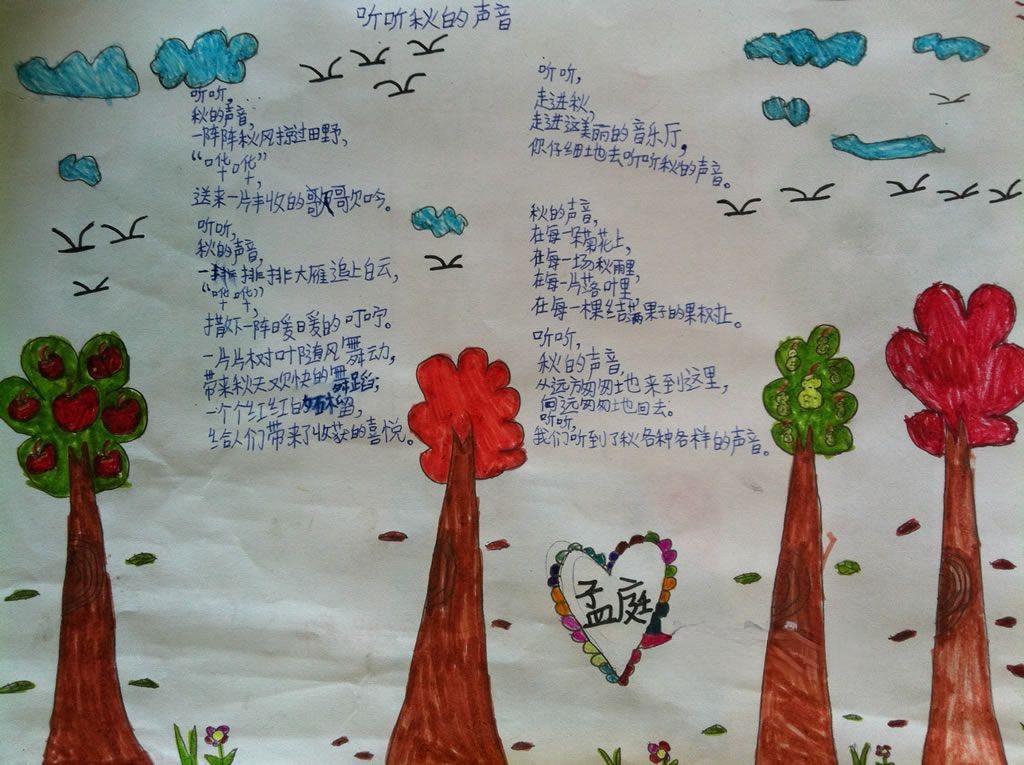 听听秋的声音
听听,
秋的声音,
一阵阵秋风掠过田野,
“哗哗”,
送来一片丰收的歌歌吟。
听听,
秋的声音,
一排排大雁追上白云,
“哗哗”,
撒下一阵暖暖的叮咛。
一片片树叶随风舞动,
带来秋天欢快的舞蹈;
一个个红红的石榴,
给人们带来了收获的喜悦。
听听,
走进秋,
走进这美丽的音乐厅,
你仔细地去听听秋的声音。
秋的声音,
在每一朵菊花上,
在每一场秋雨里,
在每一片落叶里,
在每一棵结满果子的果树上。
听听,
秋的声音,
从远方匆匆地来到这里,
向远匆匆地回去。
听听,
我们听到了秋各种各样的声音。
孟庭